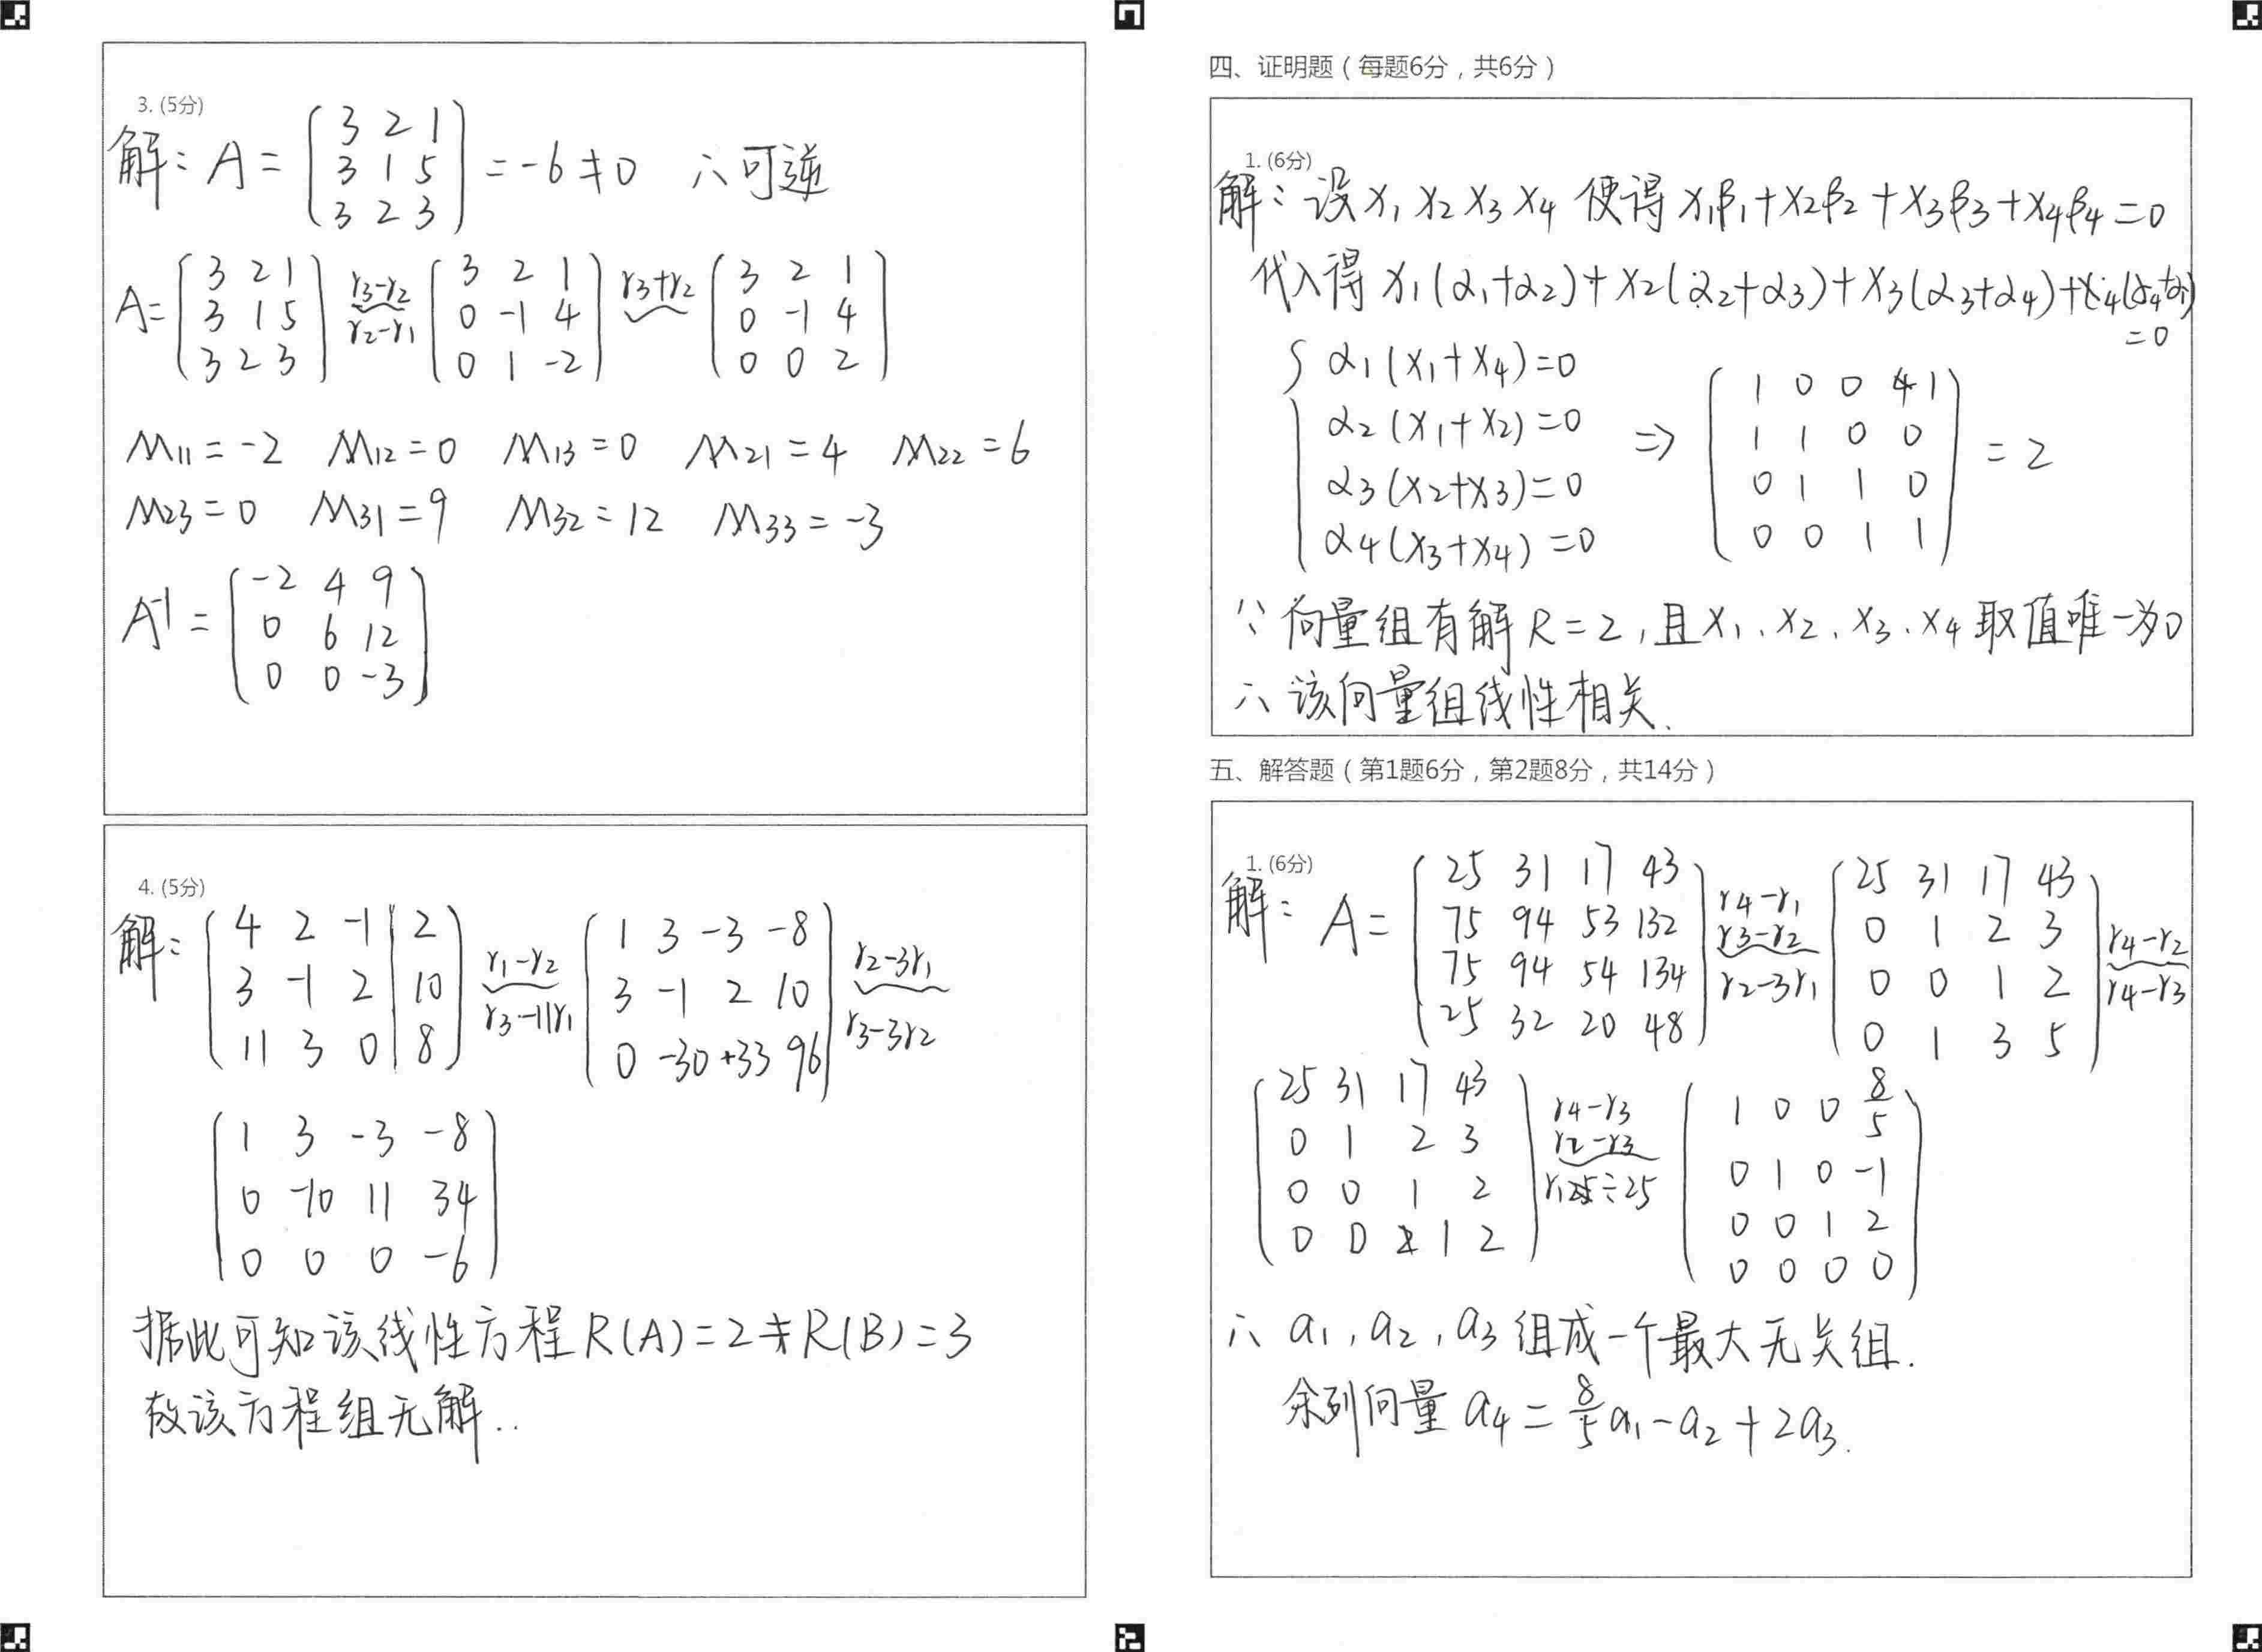 3. (5分)
解: A = (3 2 1
3 1 5
3 2 3) = -6 ≠ 0 ∴可逆
A = (3 2 1
3 1 5
3 2 3) r3-r2 r2-r1 (3 2 1
0 -1 4
0 1 -2) r3+r2 (3 2 1
0 -1 4
0 0 2)
M11 = -2 M12 = 0 M13 = 0 M21 = 4 M22 = 6
M23 = 0 M31 = 9 M32 = 12 M33 = -3
A⁻¹ = (-2 4 9
0 6 12
0 0 -3)
4. (5分)
解: (4 2 -1 | 2
3 -1 2 | 10
11 3 0 | 8) r1-r2 r3-11r1 (1 3 -3 -8
3 -1 2 10
0 -30 +33 96) r2-3r1 r3-3r2
(1 3 -3 -8
0 -10 11 34
0 0 0 -6)
据此可知该线性方程 R(A) = 2 ≠ R(B) = 3
故该方程组无解..
四、证明题（每题6分，共6分）
1. (6分)
解: 设 x1 x2 x3 x4 使得 x1β1+x2β2+x3β3+x4β4=0
代入得 x1(α1+α2)+x2(α2+α3)+x3(α3+α4)+x4(α4+α1)
=0
{ α1(x1+x4)=0
α2(x1+x2)=0
α3(x2+x3)=0
α4(x3+x4)=0
⇒ (1 0 0 1
1 1 0 0
0 1 1 0
0 0 1 1) = 2
∵ 向量组有解 R=2, 且 x1、x2、x3、x4 取值唯一为0
∴ 该向量组线性相关.
五、解答题（第1题6分，第2题8分，共14分）
1. (6分)
解: A = (25 31 17 43
75 94 53 132
75 94 54 134
25 32 20 48) r4-r1 r3-r2 r2-3r1 (25 31 17 43
0 1 2 3
0 0 1 2
0 1 3 5) r4-r2 r4-r3
(25 31 17 43
0 1 2 3
0 0 1 2
0 0 1 2) r4-r3 r2-r3 r1÷25 (1 0 0 8/5
0 1 0 -1
0 0 1 2
0 0 0 0)
∴ a1, a2, a3 组成一个最大无关组.
余列向量 a4 = 8/5 a1 - a2 + 2a3.